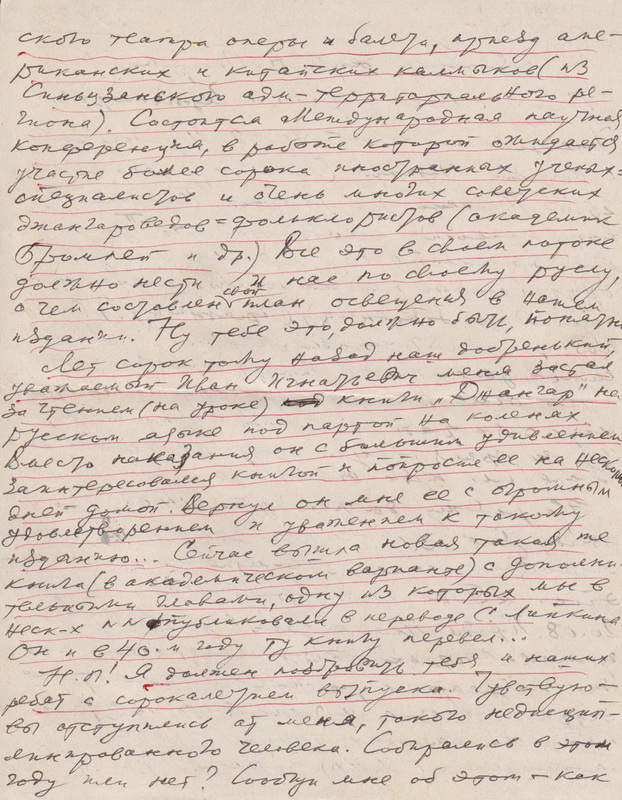 ского театра оперы и балета, приезд аме-
риканских и китайских калмыков (из
Синьцзянского адм.-территориального ре-
гиона). Состоится Международная научная
конференция, в работе которой ожидается
участие более сорока иностранных ученых-
специалистов и очень многих советских
джангароведов=фольклористов (академик
Бромлей и др.) Все это в своем потоке
должно нести и нас по своему руслу,
о чем составлен свой план освещения в нашем
издании. Ну тебе это, должно быть, понятно
Лет сорок тому назад наш добренький,
уважаемый Иван Игнатьевич меня застал
за чтением (на уроке) книги „Джангар" на
русском языке под партой на коленях
Вместо наказания он с большим удивлением
заинтересовался книгой и попросил ее на несколько
дней домой. Вернул он мне ее с огромным
удовлетворением и уважением к такому
изданию... Сейчас вышла новая такая же
книга (в академическом варианте) с дополни-
тельными главами, одну из которых мы в
неск-х NN опубликовали в переводе С. Липкина
Он и в 40-м году ту книгу перевел...
Н.! Я должен поздравить тебя и наших
ребят с сорокалетием выпуска. Чувствую-
вы отступились от меня, такого недисцип-
линированного человека. Собирались в этом
году или нет? Сообщи мне об этом - как